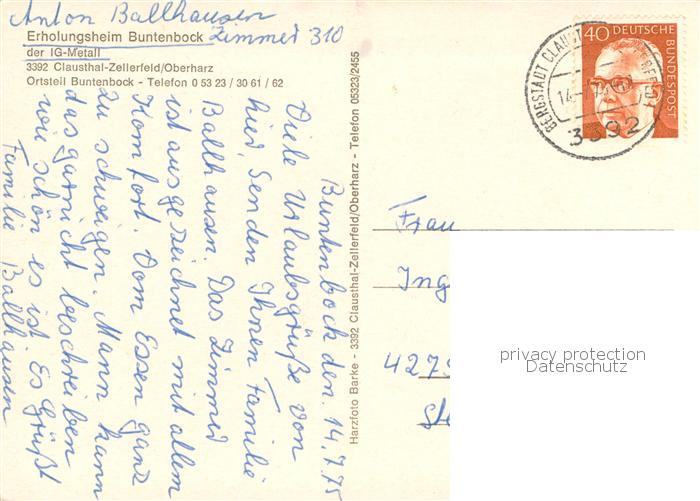 Anton Ballhausen
Erholungsheim Buntenbock Zimmer 310
der IG-Metall
3392 Clausthal-Zellerfeld/Oberharz
Ortsteil Buntenbock - Telefon 0 53 23 / 30 61 / 62
Buntenbock den. 14.7.75
Viele Urlaubsgrüße von
hier, Senden Ihnen Familie
Ballhausen. Das Zimmer
ist ausgezeichnet mit allem
Komfort. Vom Essen ganz
zu schweigen. Mann kann
das garnicht beschreiben
wie schön es ist Es Grüßt
Familie Ballhausen
Harzfoto Barke - 3392 Clausthal-Zellerfeld/Oberharz - Telefon 05323/2455
40 DEUTSCHE
BUNDESPOST
BERGSTADT CLAUST
3392
Frau
Ing
427
privacy protection
Datenschutz